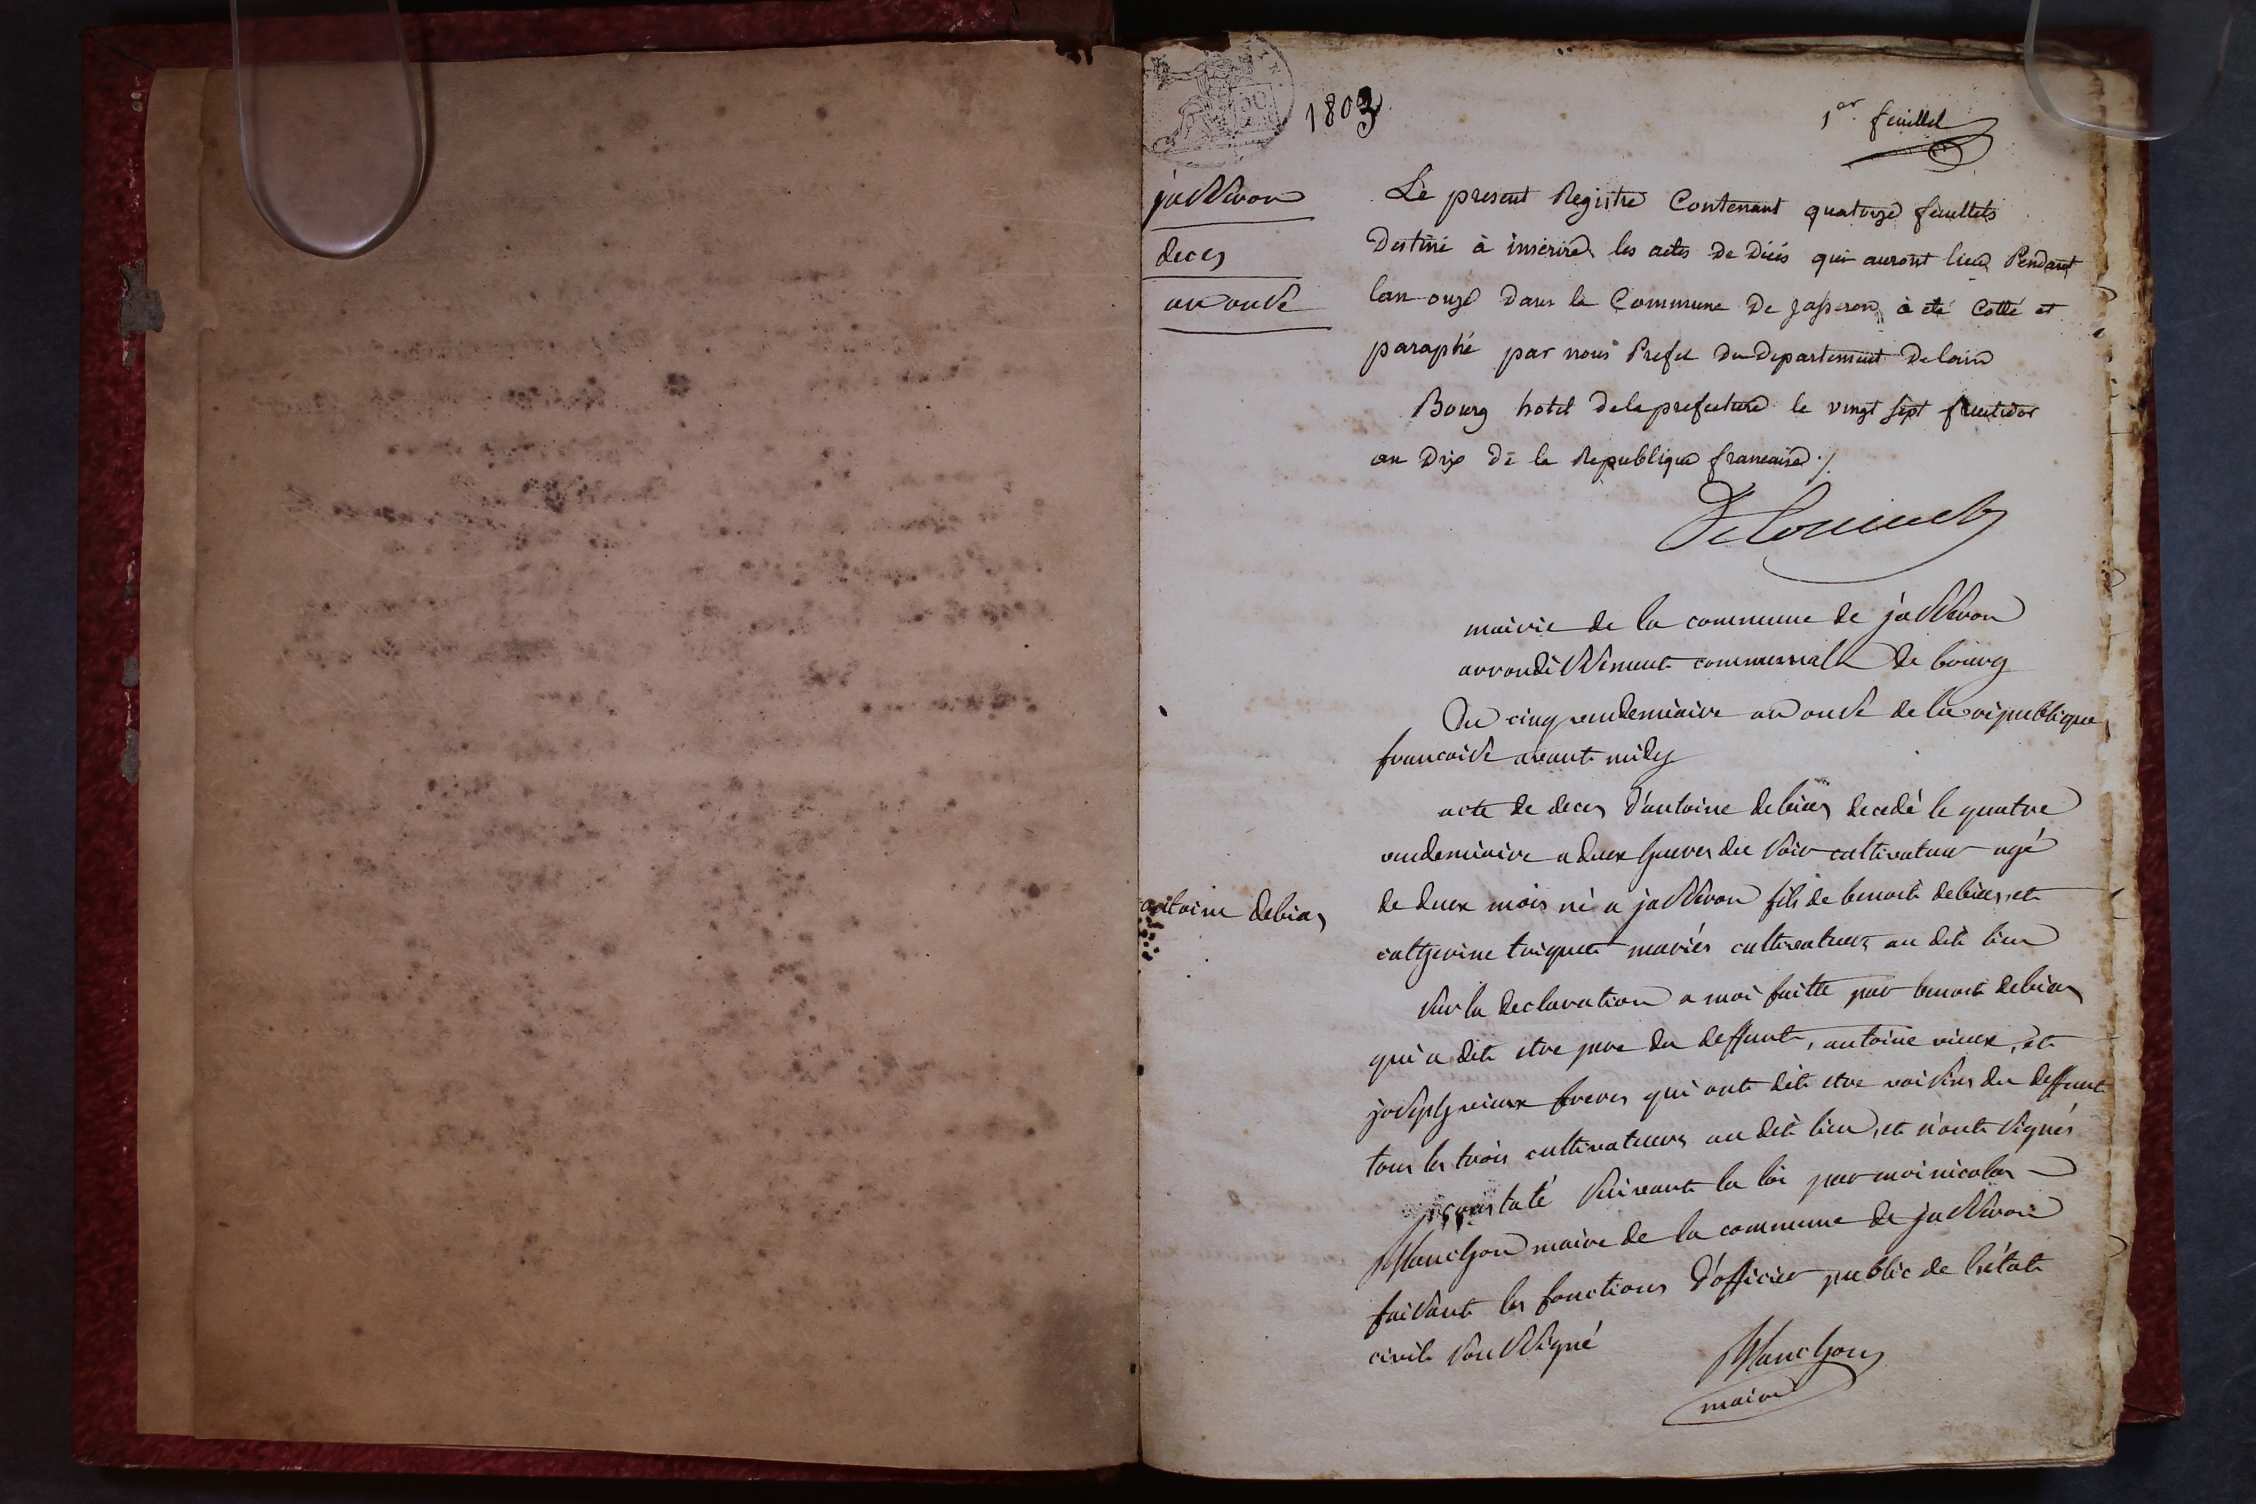 1803
1er feuillet
jasseron
deces
an onse
Le present Registre Contenant quatorze feuillets
Destiné à inscrire les actes De Décés qui auront lieu Pendant
lan onze Dans la Commune De Jasseron, à eté Cotté et
paraphé par nous Prefet du departement De lain
Bourg hotel de la prefecture le vingt sept fructidor
an Dix de la Republique francaise ./.
mairie de la commune de jasseron
arrondissement communal de bourg
Du cinq vendemiaire an onse de la republique
francoise avant midy
acte de deces d'antoine debias decedé le quatre
vendemiaire a deux heures du soir cultivateur agé
de deux mois né a jasseron fils de benoit debias, et
antoine debias
catherine triquet mariés cultivateurs au dit lieu
sur la declaration a moi faitte par benoit debias
qui a dit etre pere du deffunt, antoine vieux, et
joseph vieux freres qui ont dit etre voisins du deffunt
tous les trois cultivateurs au dit lieu, et n'ont signés
constaté suivant la loi par moi nicolas
Manchon maire de la commune de jasseron
faisant les fonctions d'officier public de l'état
civil soussigné
Manchon
maire